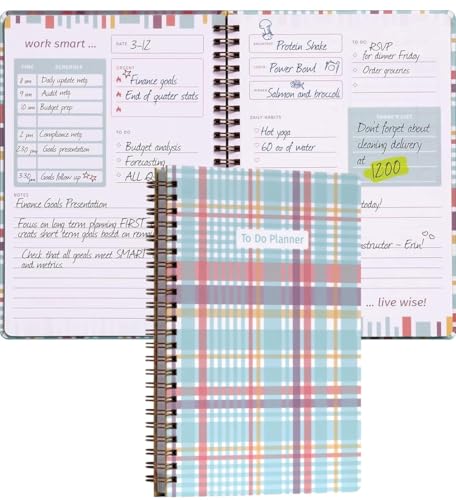 work smart ...
DATE: 3-12
TIME SCHEDULE
8 am Daily update mtg
9 am Audit mtg
10 am Budget prep
1 pm Compliance mtg
2:30 pm Goals presentation
3:30 pm Goals follow up
URGENT
Finance goals
End of quater stats
TO DO
Budget analysis
Forecasting
ALL Q
NOTES
Finance Goals Presentation
Focus on long term planning FIRST
creats short term goals basted on
Check that all goals meet SMART
and metrics
BREAKFAST Protein Shake
LUNCH Power Bowl
DINNER Salmon and broccoli
DAILY HABITS
Hot yoga
60 oz of water
TO DO
RSVP
for dinner Friday
Order groceries
Don't forget about
cleaning delivery
at 1200
today!
structor - Erin!
... live wise!
To Do Planner